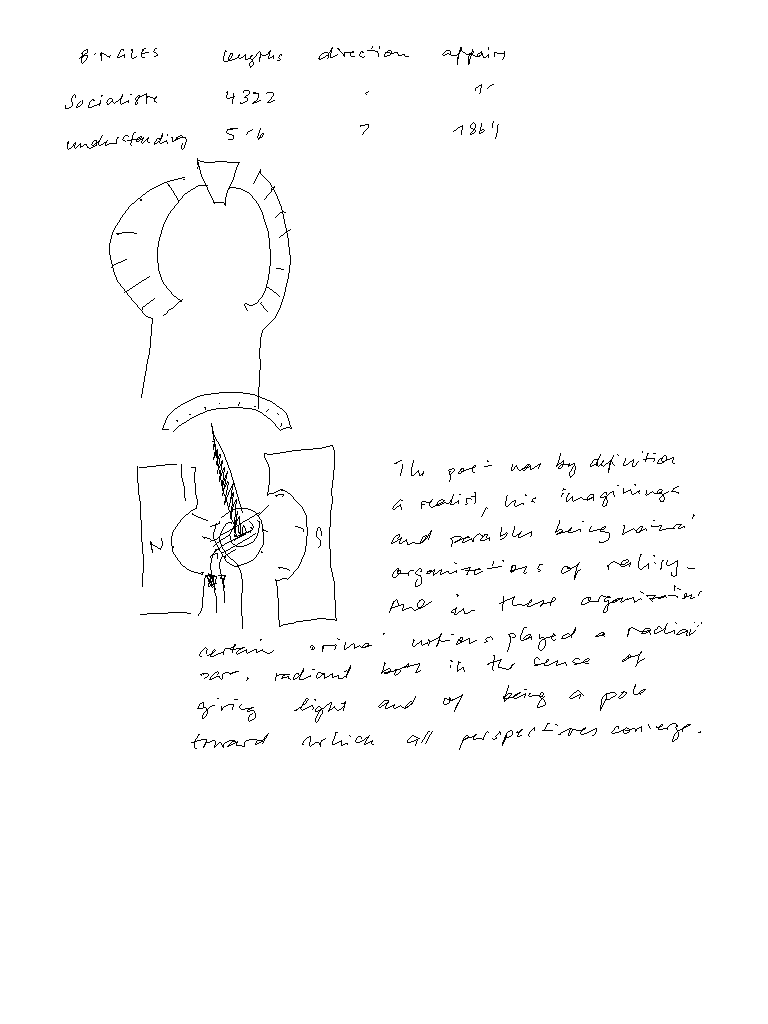 BINGLES lengths direction affairs
Socialiste 4322
understanding 7
The poet was by definition
a realist, his imaginings
and parables being natural
organizations of reality.
And in these organizations
N S
certain notions played a radial
radiant both in the sense of
giving light and of being a pole
toward which all perspectives converge.